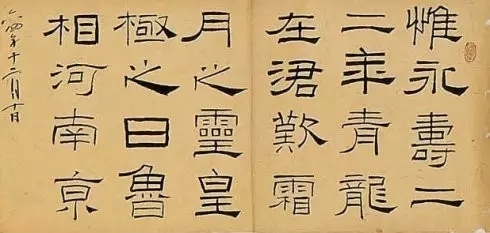 惟永壽二
二年青龍
在涒歎霜
月之靈皇
極之日魯
相河南京